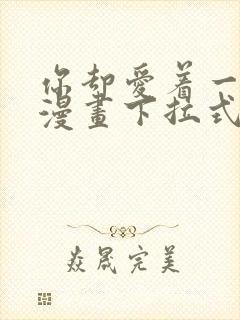 你却愛着一
漫畫下拉式
焱晟完美